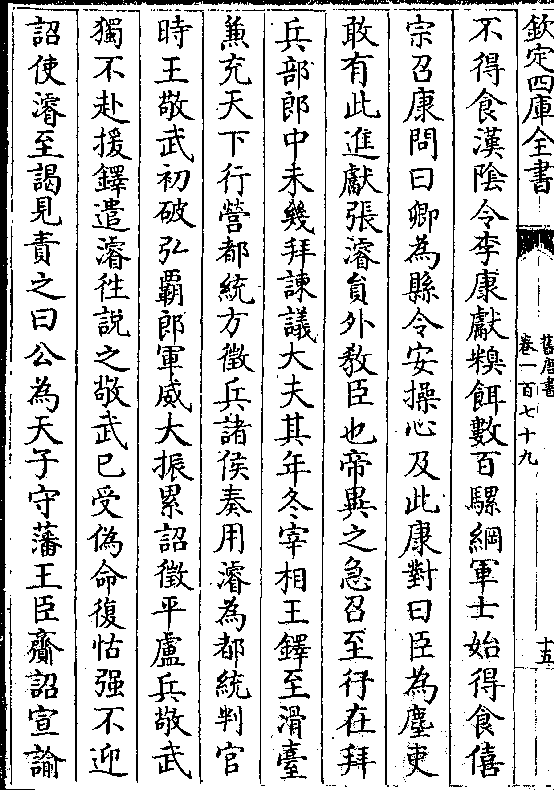 欽定四庫全書
舊唐書
卷一百七十九
十五
不得食漢陰令李康獻糗餌數百騾綱軍士始得食僖
宗召康問曰卿為縣令安操心及此康對曰臣為塵吏
敢有此進獻張濬員外教臣也帝異之急召至行在拜
兵部郎中未幾拜諫議大夫其年冬宰相王鐸至滑臺
兼充天下行營都統方徵兵諸侯奏用濬為都統判官
時王敬武初破弘霸郎軍威大振累詔徵平盧兵敬武
獨不赴援鐸遣濬往說之敬武已受偽命復怙强不迎
詔使濬至謁見責之曰公為天子守藩王臣齎詔宣諭